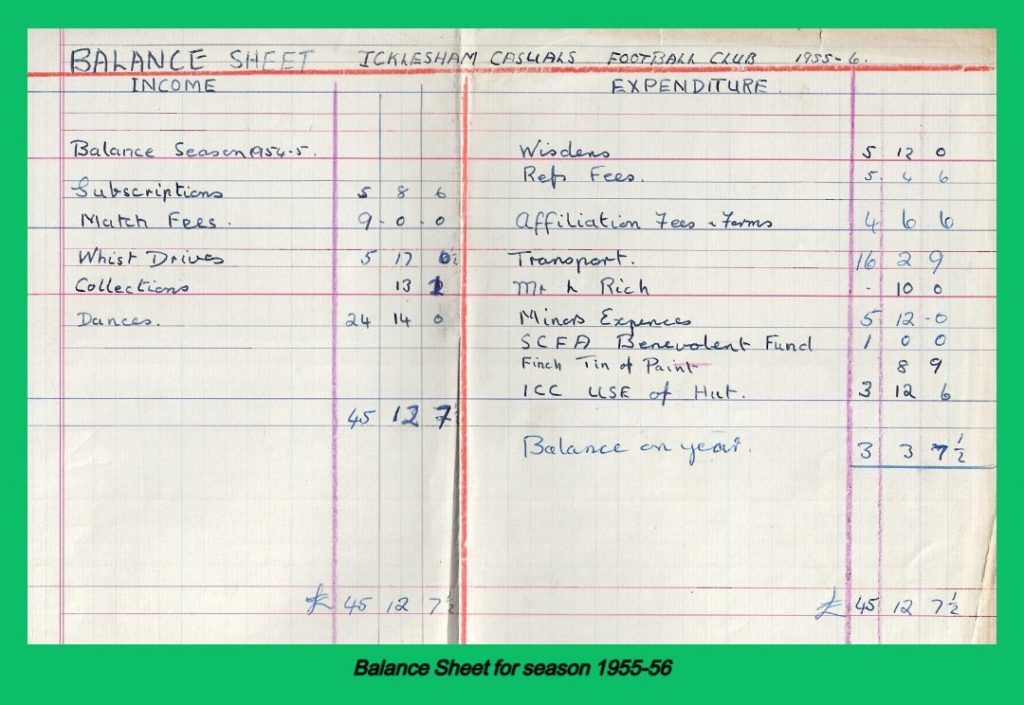 BALANCE SHEET ICKLESHAM CASUALS FOOTBALL CLUB 1955-6.
INCOME
Balance Season 1954-5.
Subscriptions 5 8 6
Match Fees. 9-0-0
Whist Drives 5 17 0½
Collections 13 1
Dances. 24 14 0
45 12 7½
£ 45 12 7½
EXPENDITURE
Wisdens 5 12 0
Refs Fees. 5 4 6
Affiliation Fees & Forms 4 6 6
Transport. 16 2 9
Mr L Rich - 10 0
Minors Expences 5 12-0
SCFA Benevolent Fund 1 0 0
Finch Tin of Paint 8 9
ICC USE of Hut. 3 12 6
Balance on year. 3 3 7½
£ 45 12 7½
Balance Sheet for season 1955-56